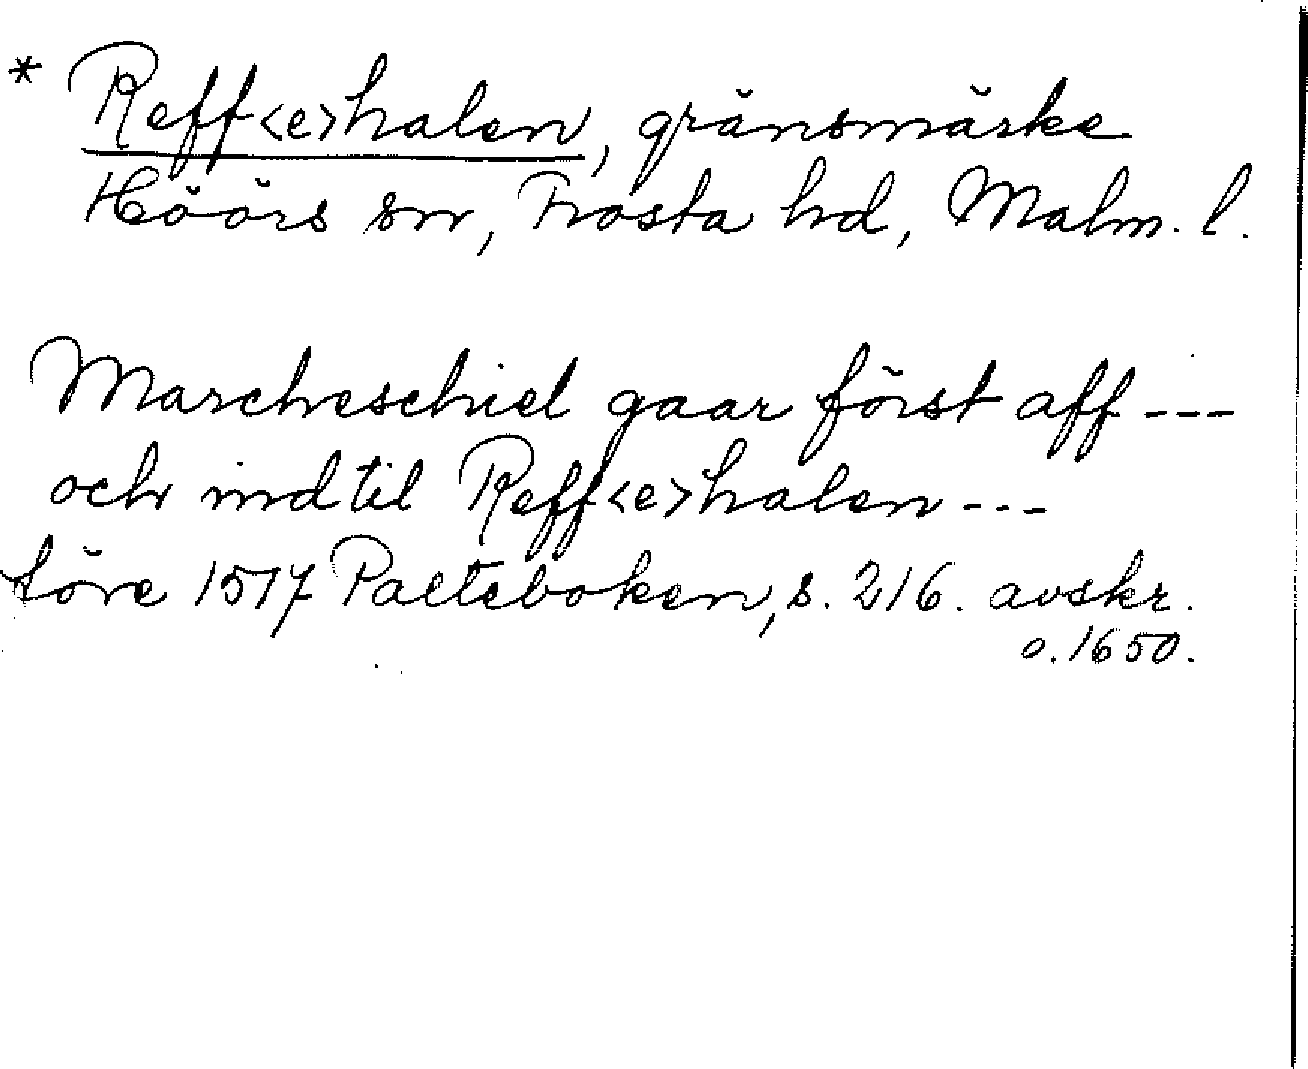 * Reff<e>halen, gränsmärke
Höörs sn, Frosta hd, Malm. l.
Marcheschiel gaar först aff ---
och indtil Reff<e>halen ---
före 1517 Palteboken, s. 216. avskr.
o. 1650.